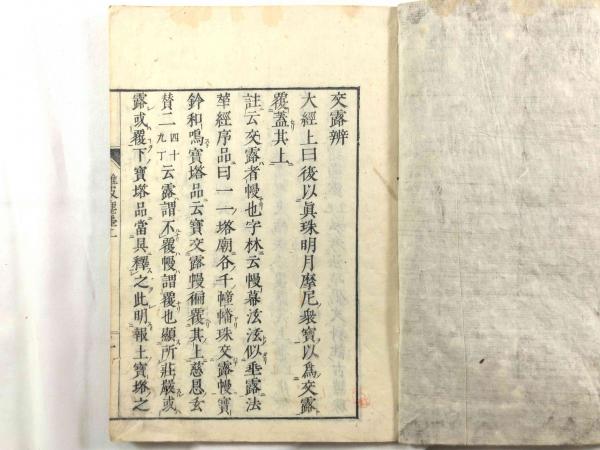 交露辨
大經上曰後以眞珠明月摩尼衆寶以爲交露
覆蓋其上
註云交露者幔也字林云幔幕泫泫似垂露法
華經序品曰一一塔廟各千幢幡珠交露幔寶
鈴和鳴寶塔品云寶交露幔徧覆其上慈恩玄
賛二四十九丁云露謂不覆幔謂覆也顯所莊嚴或
露或覆下寶塔品當具釋之此明報土寶塔之